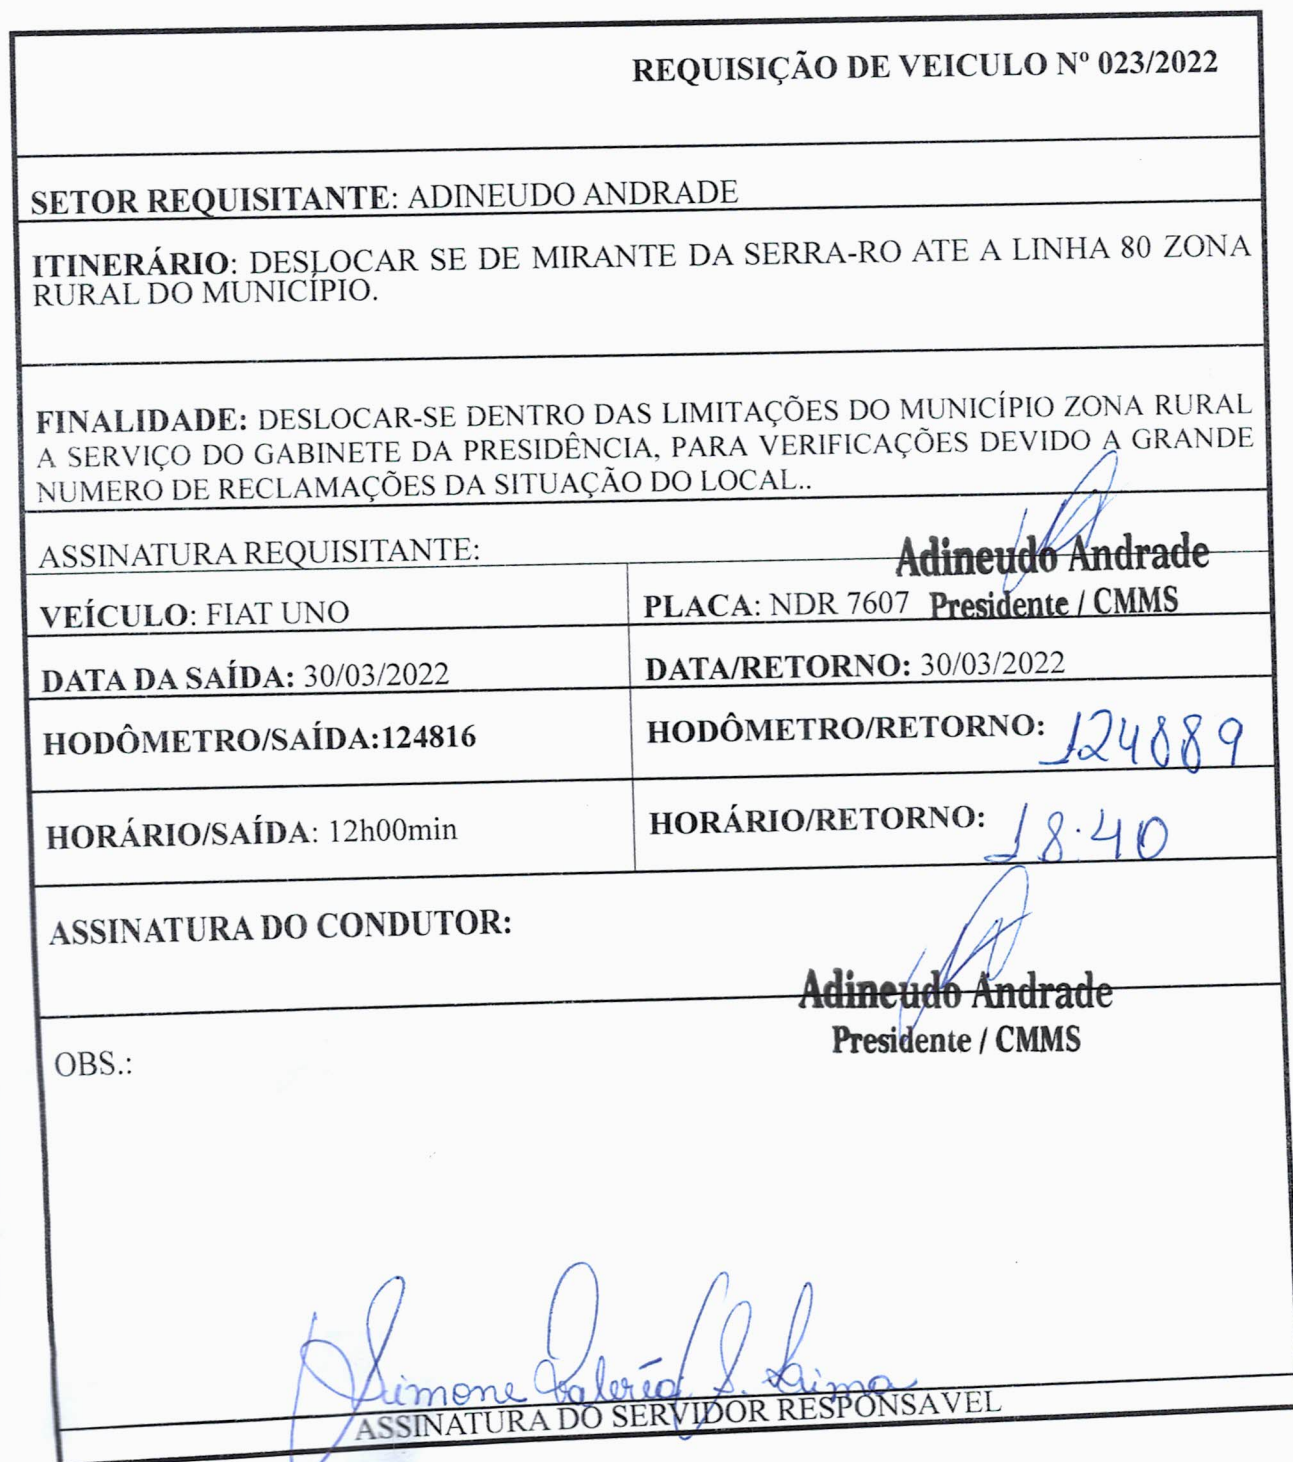 REQUISIÇÃO DE VEICULO Nº 023/2022
SETOR REQUISITANTE: ADINEUDO ANDRADE
ITINERÁRIO: DESLOCAR SE DE MIRANTE DA SERRA-RO ATE A LINHA 80 ZONA
RURAL DO MUNICÍPIO.
FINALIDADE: DESLOCAR-SE DENTRO DAS LIMITAÇÕES DO MUNICÍPIO ZONA RURAL
A SERVIÇO DO GABINETE DA PRESIDÊNCIA, PARA VERIFICAÇÕES DEVIDO A GRANDE
NUMERO DE RECLAMAÇÕES DA SITUAÇÃO DO LOCAL..
ASSINATURA REQUISITANTE:
Adineudo Andrade
Presidente / CMMS
VEÍCULO: FIAT UNO
PLACA: NDR 7607
DATA DA SAÍDA: 30/03/2022
DATA/RETORNO: 30/03/2022
HODÔMETRO/SAÍDA:124816
HODÔMETRO/RETORNO: 124889
HORÁRIO/SAÍDA: 12h00min
HORÁRIO/RETORNO: 18:40
ASSINATURA DO CONDUTOR:
Adineudo Andrade
Presidente / CMMS
OBS.:
Simone Valeria S. Lima
ASSINATURA DO SERVIDOR RESPONSAVEL